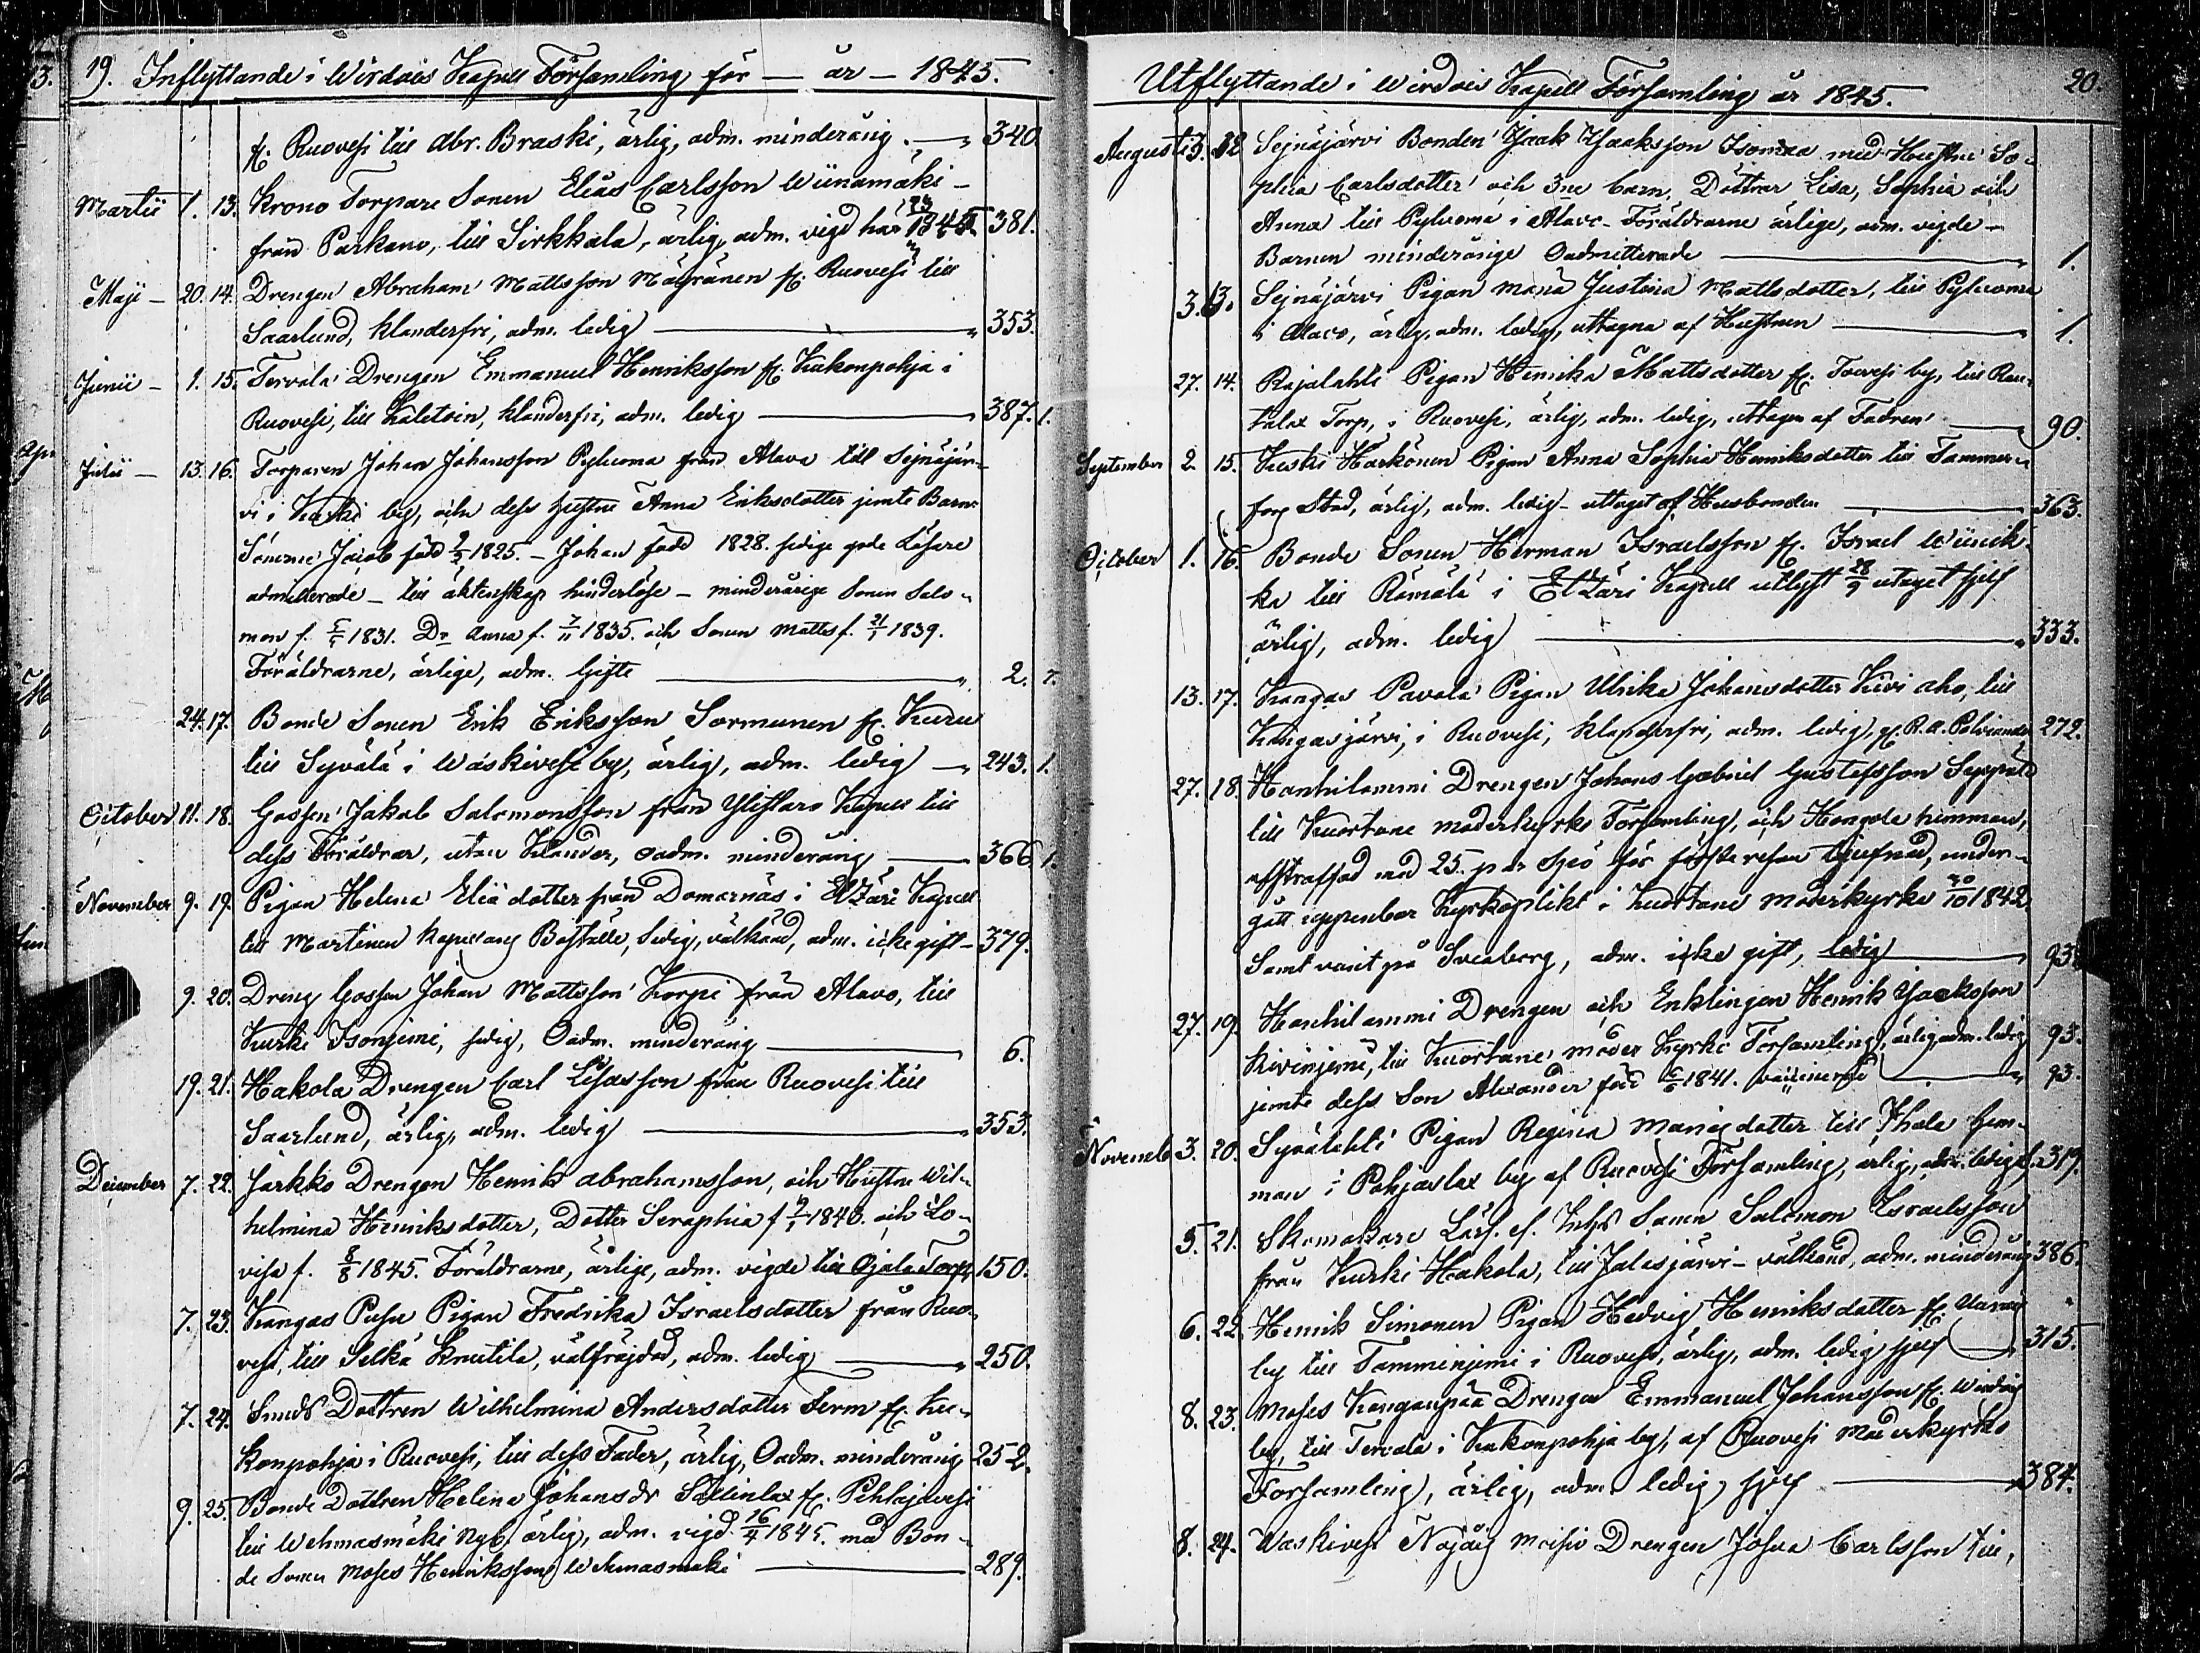 19. Inflyttande i Wirdois Kapell Församling för — år — 1845.
fr. Ruovesi till Abr. Braski, ärlig, adm. minderårig. — 340
Martii 1. 13. Krono Torpare Sonen Elias Carlsson Wiinamäki
från Parkano, till Sirkkala, ärlig, adm. vigd här 1845. 381.
Maji — 20. 14. Drengen Abraham Mattsson Mäyränen fr. Ruovesi till
Saarlund, klanderfri, adm. ledig — 353.
Junii — 1. 15. Tervala Drengen Emmanuel Henriksson fr. Kukonpohja i
Ruovesi, till klanderfri, adm. ledig — 387. 1.
Julii — 13. 16. Torparen Johan Johansson Pylvoma från Alava till Sejnäjär-
vi i Kurki by, och dess hustru Anna Eriksdotter jemte Barn:
Sönerne Jacob född 1825. — Johan född 1828. sedige gode Läsare
admitterade — till äktenskap hinderlöse — minderårige Sonen Salo-
mon f. 1831. Dr Anna f. 7/11 1835. och Sonen Matts f. 21/1 1839.
Föräldrarne, ärlige, adm. Gifte — 2. 7.
24. 17. Bonde Sonen Erik Eriksson Sormunen fr. Kuru
till Syvälä i Wäskivesi by, ärlig, adm. ledig — 243. 1.
October 11. 18. Gossen Jakob Salomonsson från Ylistaro Kapell till
dess Föräldrar, utan Klander, oadm. minderårig — 366 1.
November 9. 19. Pigan Helena Eliæ dotter från Domarnäs i Etzäri Kapell
till Martinen Kapellans Boställe, sedig, välkänd, adm. icke gift — 379.
9. 20. Dreng Gossen Johan Mattsson Korpi från Alavo, till
Kurki Isoniemi, sedig, Oadm. minderårig — 6.
19. 21. Hakola Drengen Carl från Ruovesi till
Saarlund, ärlig, adm. ledig — 353.
December 7. 22. Jarkko Drengen Henrik Abrahamsson, och Hustru Wil-
helmina Henriksdotter, Dotter Seraphia f 1840. och Lo-
visa f. 8/8 1845. Föräldrarne, ärlige, adm. vigde till Ojala Torp, 150.
7. 23. Kangas Pusu Pigan Fredrika Israelsdotter från Ruo-
vesi, till Selkä Knuutila, välfräjdad, adm. ledig — 250.
7. 24. Smeds Dottren Wilhelmina Andersdotter fr. Ku-
konpohja i Ruovesi, till dess Fader, ärlig, Oadm. minderårig 252.
9. 25. Bonde Dottren Helena Johansdr fr. Pihlajavesi
till Wehmasmäki Nyb. ärlig, adm. vigd 16/4 1845. med Bon-
de Sonen Moses Henriksson Wehmasmäki — 289.
Utflyttande i Wirdois Kapell Församling år 1845. 20.
Augusti 3. 12 Sejnäjärvi Bonden Isaak Isaaksson Isomaa med Hustru So-
phia Carlsdotter och 3ne barn, Döttrar Lisa, Sophia och
Anna till Pylvoma i Alavo. Föräldrarne ärlige, adm. vigde —
Barnen minderårige Oadmitterade — 1.
3. 13. Sejnäjärvi Pigan Maria Justina Mattsdotter, till Pylvoma
i Alavo, ärlig, adm. ledig, uttagna af Hustrun — 1.
27. 14. Rajalahti Pigan Henrika Mattsdotter fr. Toivesi by, till Rau-
talax Torp, i Ruovesi, ärlig, adm. ledig, uttagen af Fadren — 90.
September 2 15. Keski Härkönen Pigan Anna Sophia Henriksdotter till Tammer-
fors Stad, ärlig, adm. ledig — uttaget af Husbonden — 363.
October 1. 16. Bonde Sonen Herman Israelsson fr. Israel Wiinik-
ka till Rämälä i Etzäri Kapell utlyst 28/9 utaget sjelf
ärlig, adm. ledig — 333.
13. 17. Kangas Pavola Pigan Ulrika Johansdotter Kivi aho, till
Kangasjärvi, i Ruovesi, klanderfri, adm. ledig, 272.
27. 18. Hanhilammi Drengen Johans Gabriel Gustafsson Seppälä
till Kuortane moderkyrko Församling, och Hongola hemman,
afstraffad med 25. par spö för första resan tjufnad, under-
gått uppenbar Kyrkoplikt i Kuortane moderkyrko 30/10 1842.
Samt varit på Sveaborg, adm. icke gift, ledig — 93.
27. 19. Hanhilammi Drengen och Enklingen Henrik Isaaksson
Kiviniemi, till Kuortane moder Kyrko Församling, ärlig adm. ledig 93.
jemte dess Son Alexander född 1841. vaccinerad — 93.
Novemb 3. 20. Syvälahti Pigan Regina Mariæ dotter till Ihala hem-
man i Pohjaslax by af Ruovesi Församling, ärlig, adm. ledig 317.
5. 21. Skomakare Lärl. Sonen Salomon Israelsson
från Kurki Hakola, till Jalasjärvi — välkänd, adm. minderårig 386.
6. 22. Henrik Simonen Pigan Hedvig Henriksdotter fr.
by till Tamminiemi i Ruovesi, ärlig, adm. ledig sjelf — 315.
8. 23. Moses Kangaspää Drengen Emmanuel Johansson fr. Wirdois
by, till Tervala i Kukonpohja by, af Ruovesi Moderkyrko
Församling, ärlig, adm. ledig sjelf — 384.
8. 24. Waskivesi Drengen Josua Carlsson till,